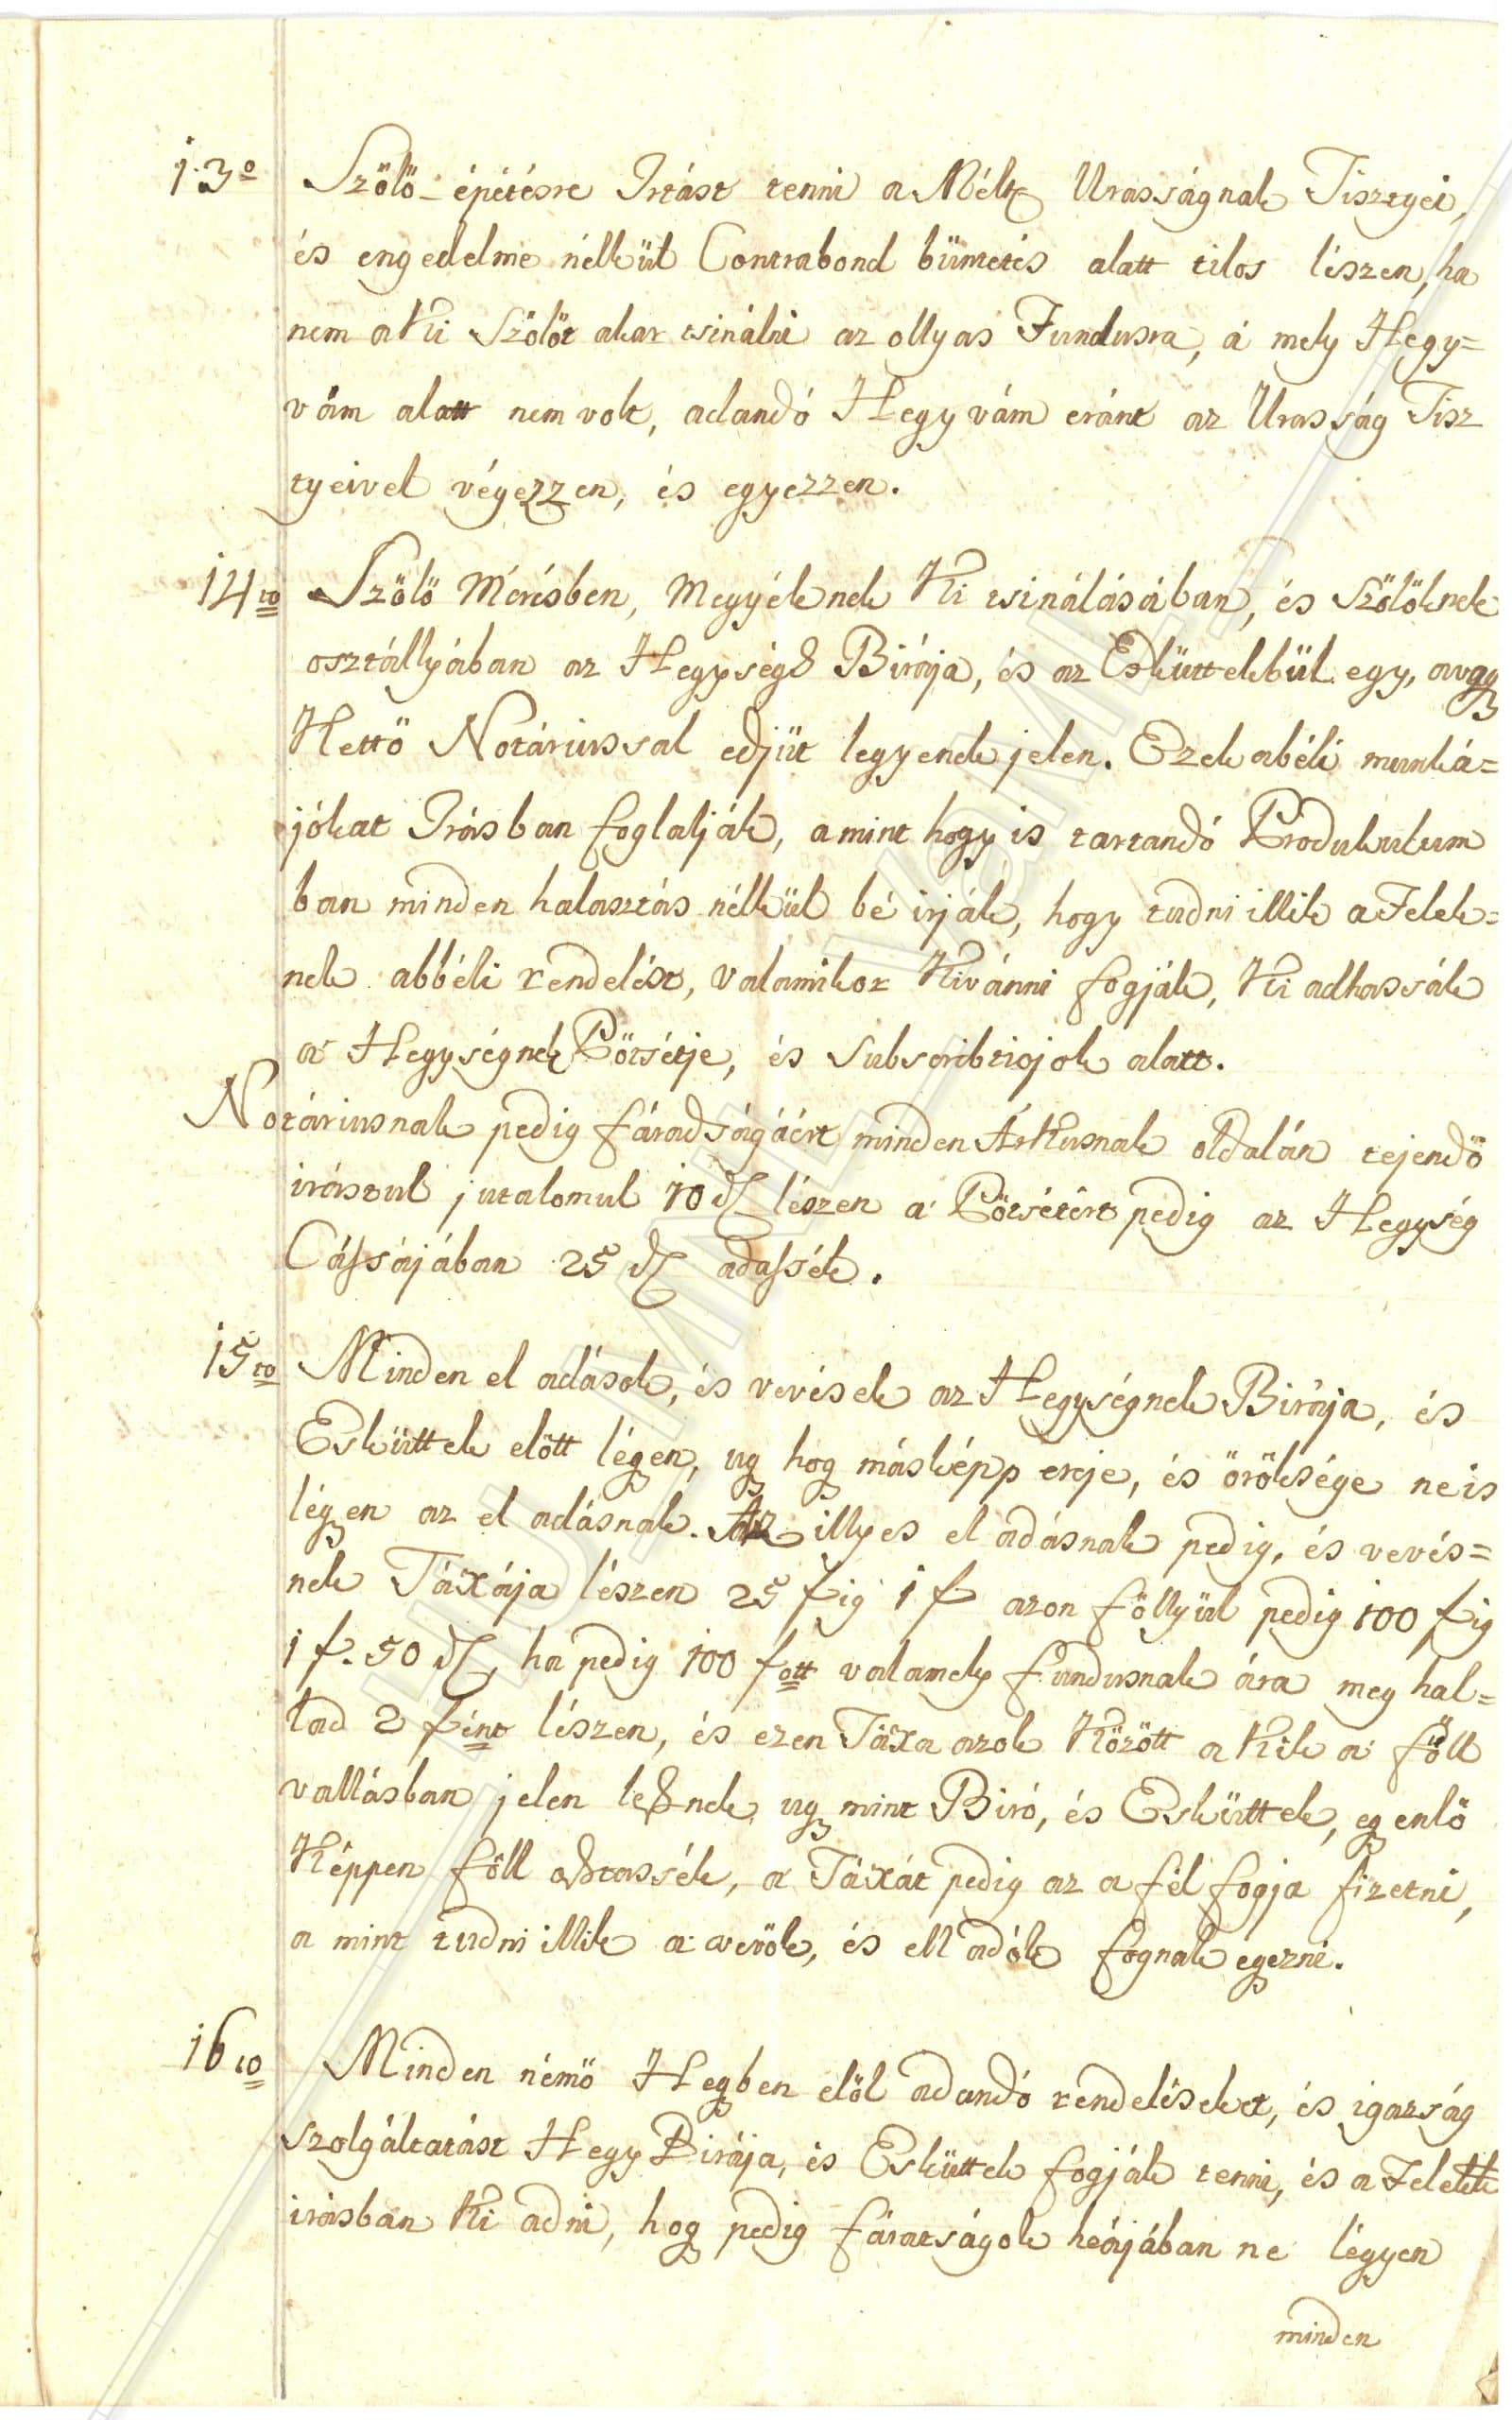 13o Szölö-épétésre Irtást tenni a Mélt Uraságnak Tisztyei,
és engedelme nélkül Contrabond büntetés alatt tilos lészen, ha
nem a Ki Szölöt akar tsinálni az ollyas Fundusra, á mely Hegy=
vám alatt nem volt, adandó Hegyvám eránt az Uraság Tisz
tyeivel végezzen, és egyezzen.
14to Szölö Mérésben, Megyéknek Ki tsinálásában, és Szölöknek
osztállyában az Hegység Birája, és az Esküttekbül egy, avagy
Kettö Notáriussal edjüt legyenek jelen. Ezek abéli munká=
jókat Irásban foglalják, amint hogy is tartandó Produkulum
ban minden halasztás nélkül bé irják, hogy tudni illik a Felek=
nek abbéli rendelést, valamikor Kivánni fogják, Ki adhassák
a Hegységnek Pötsétje, és Subscribtiojok alatt.
Notáriusnak pedig fáradságáért minden Árkusnak oldalán tejendö
irástul jutalomul 10 d lészen a Pötsétért pedig az Hegység
Cássájában 25 d adassék.
15to Minden el adások, és vevések az Hegységnek Birája, és
Esküttek elött légyen, ugy hogy másképp ereje, és öröksége ne is
légyen az el adásnak. Az illyes el adásnak pedig, és vevés=
nek Táxája lészen 25 fig 1 f azon föllyül pedig 100 fig
1 f. 50 d, ha pedig 100 fott valamely fundusnak ára meg hal=
lad 2 fint lészen, és ezen Táxa azok Között a Kik a föll
vallásban jelen lesznek ugy mint Biró, és Esküttek, egyenlö
Képpen föll osztassék, a Táxát pedig az a fél fogja fizetni,
a mint tudni illik a vevök, és ell adók fognak egyezni.
16to Minden némö Hegyben elöl adandó rendeléseket, és igazság
szolgáltatást Hegy Birája, és Esküttek fogják tenni, és a Felek
irásban Ki adni, hogy pedig fáratságok héájában ne légyen
minden